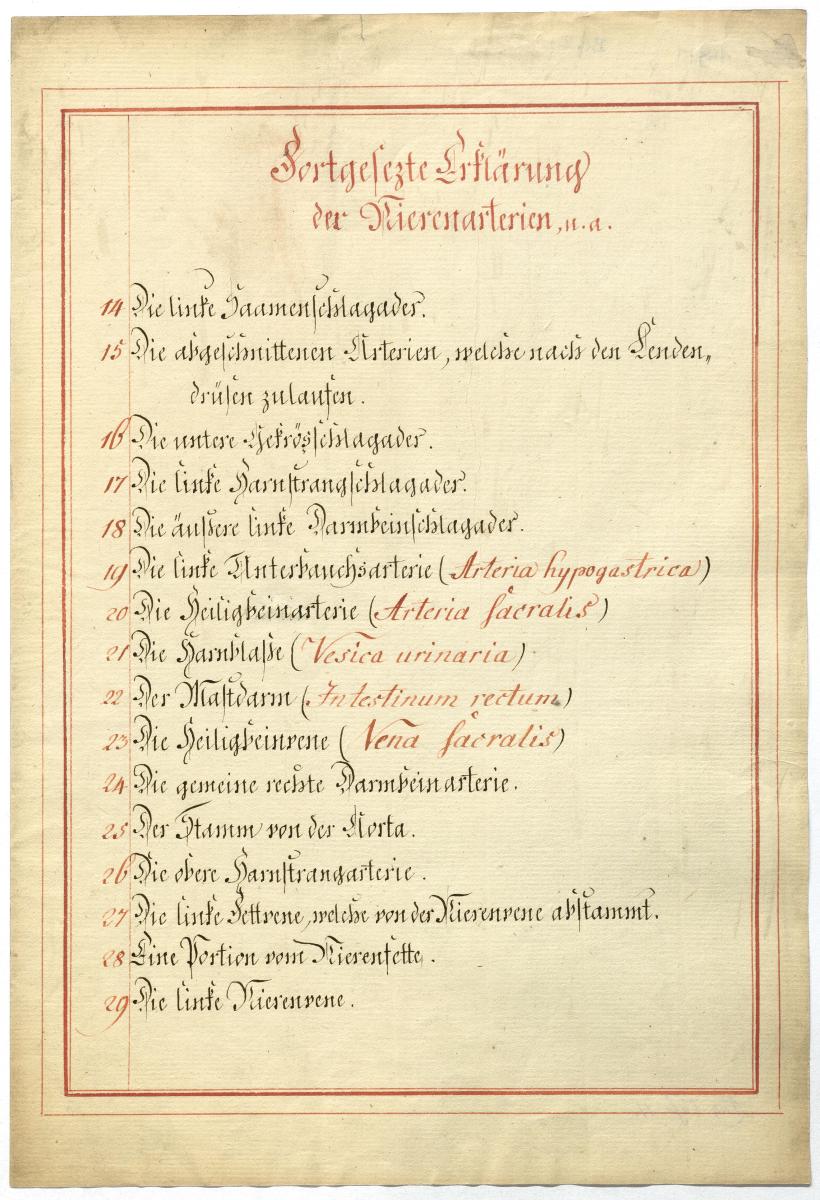 Fortgesezte Erklärung
der Nierenarterien, u. a.
14 Die linke Saamenschlagader.
15 Die abgeschnittenen Arterien, welche nach den Lenden„
drüsen zulaufen.
16 Die untere Gekrösschlagader.
17 Die linke Harnstrangschlagader.
18 Die äußere linke Darmbeinschlagader.
19 Die linke Unterbauchsarterie (Arteria hypogastrica)
20 Die Heiligbeinarterie (Arteria sacralis)
21 Die Harnblaße (Vesica urinaria)
22 Der Mastdarm (Intestinum rectum)
23 Die Heiligbeinvene (Vena sacralis)
24 Die gemeine rechte Darmbeinarterie.
25 Der Stamm von der Aorta.
26 Die obere Harnstrangarterie.
27 Die linke Fettvene, welche von der Nierenvene abstammt.
28 Eine Portion vom Nierenfette.
29 Die linke Nierenvene.